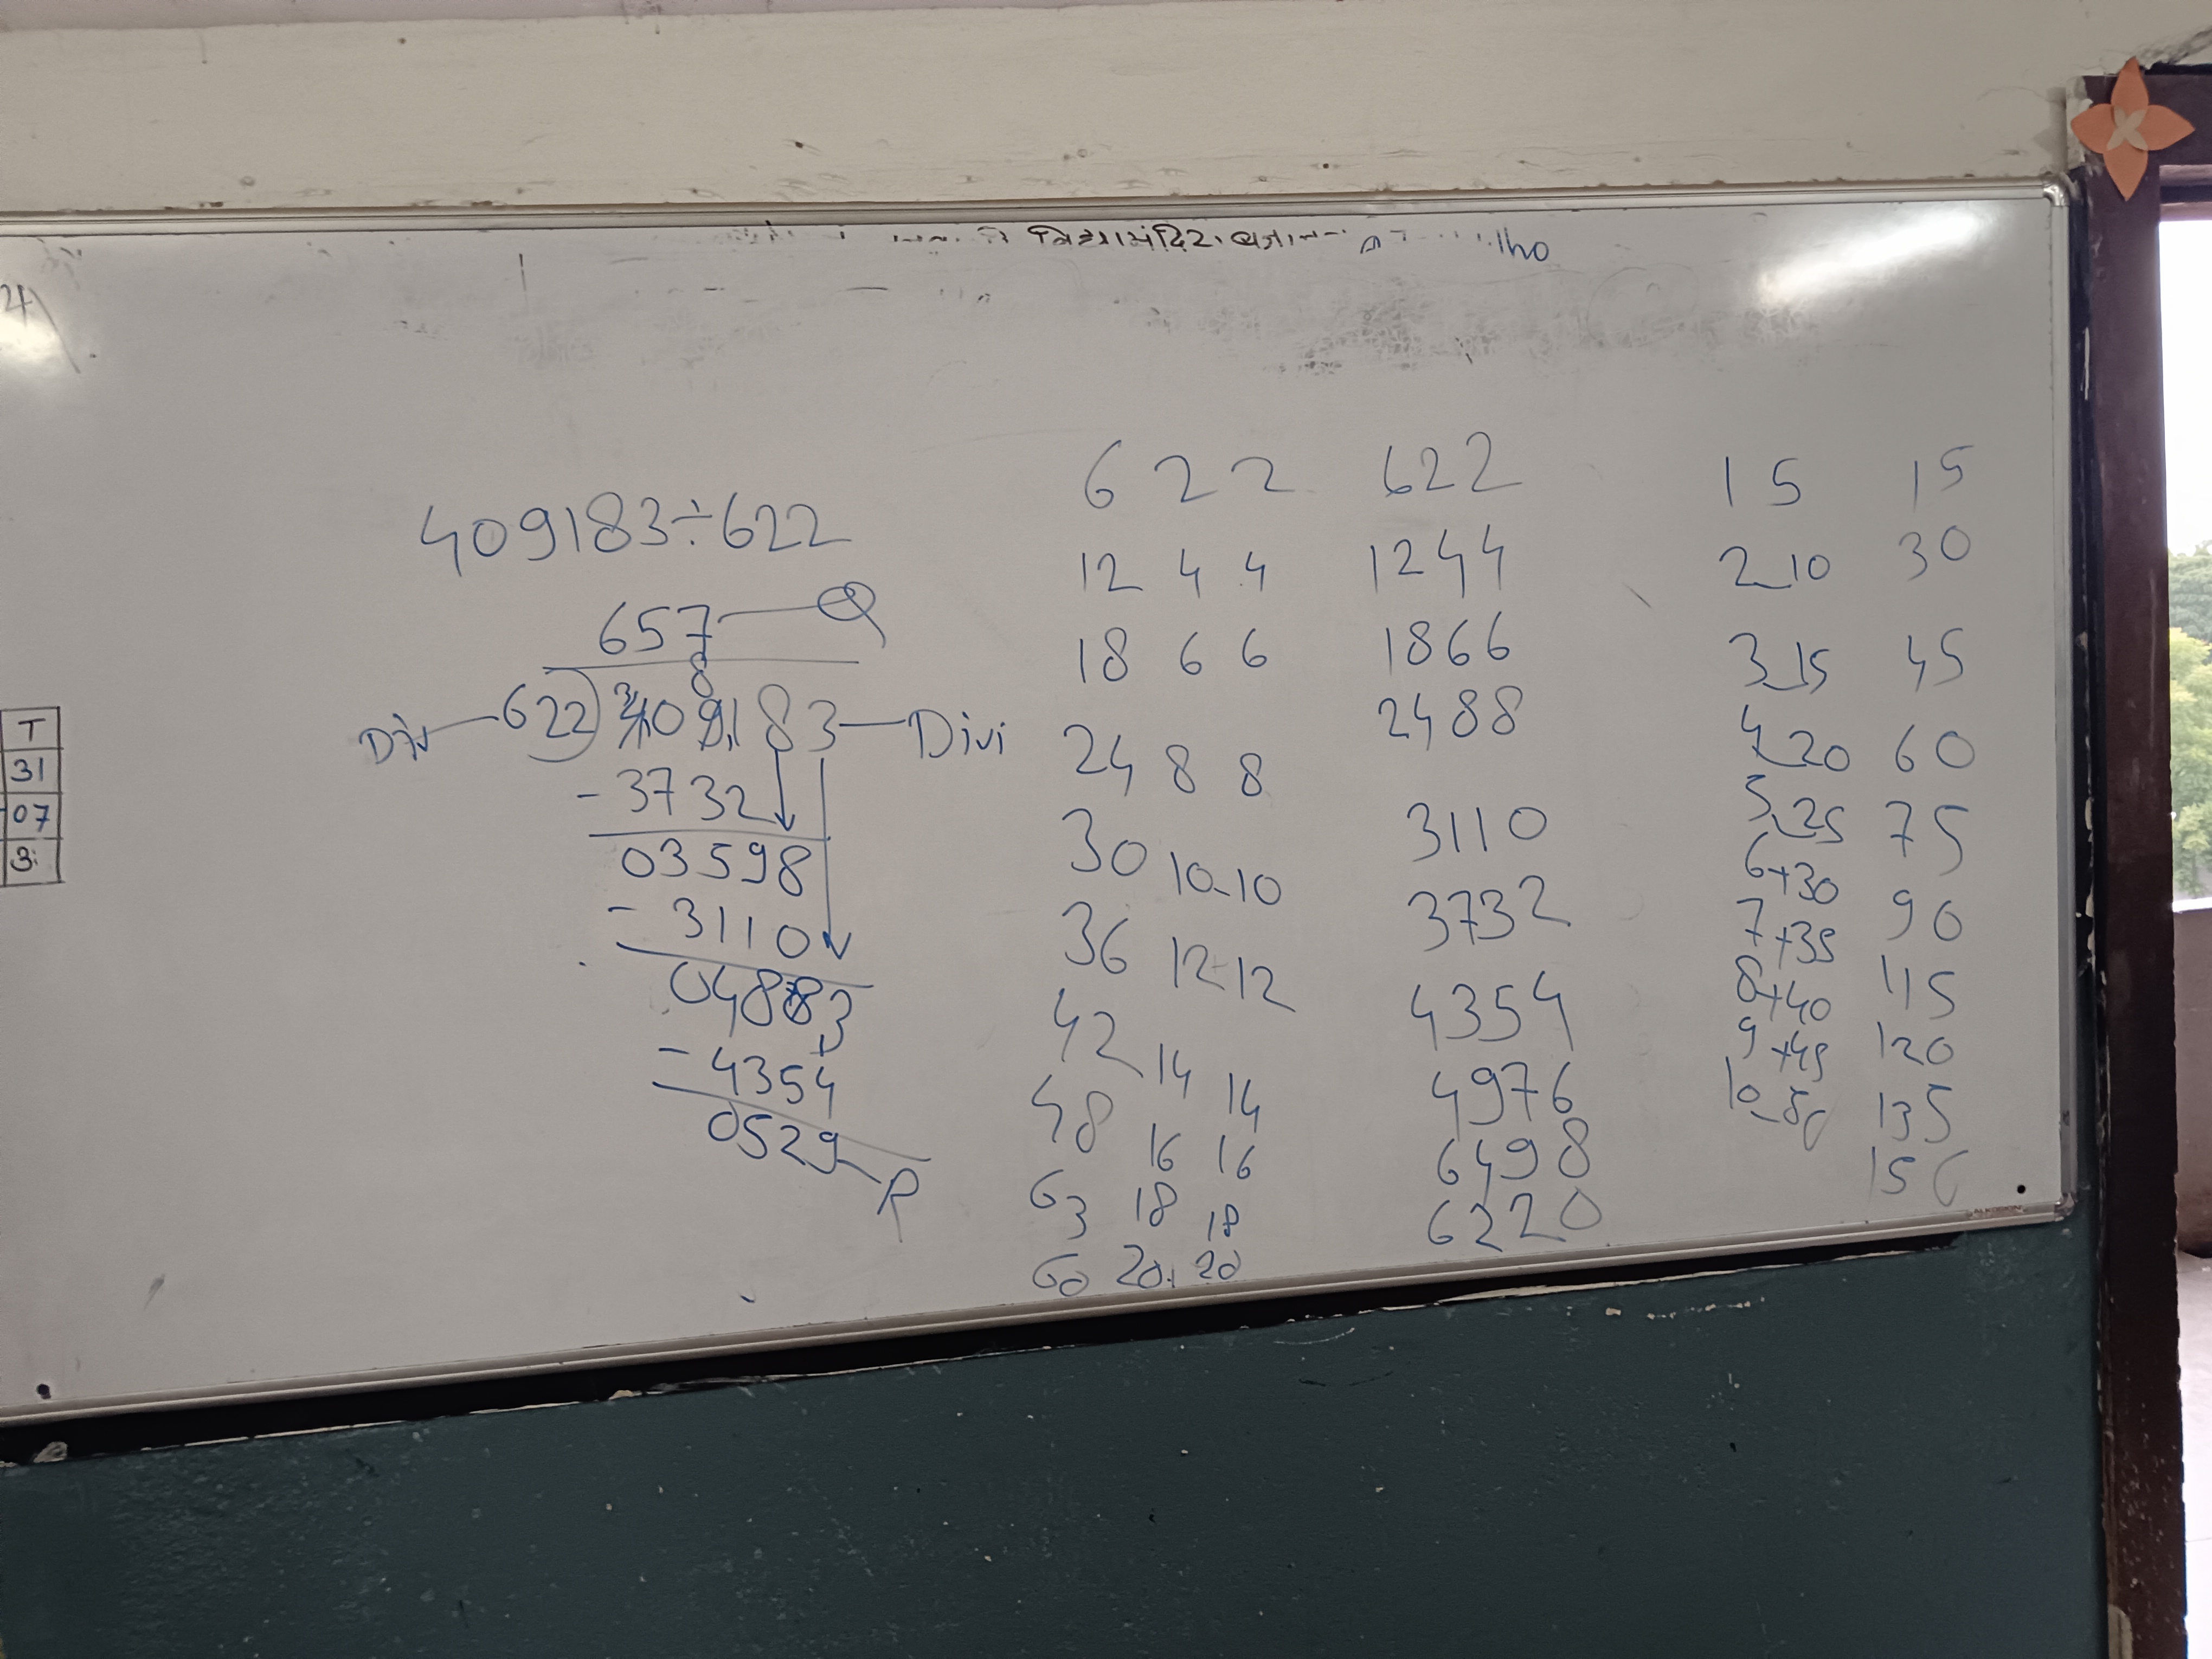 विद्यामंदिर
24
T
31
07
3
409183÷622
657 — Q
8
Div — 622) 409183 — Divi
- 3732
03598
- 3110
04883
- 4354
0529 R
6 2 2
12 4 4
18 6 6
24 8 8
30 10 10
36 12 12
42 14 14
48 16 16
63 18 18
60 20 20
622
1244
1866
2488
3110
3732
4354
4976
6498
6220
1 5
2 10
3 15
4 20
5 25
6+30
7+35
8+40
9+45
10 50
15
30
45
60
75
90
115
120
135
150